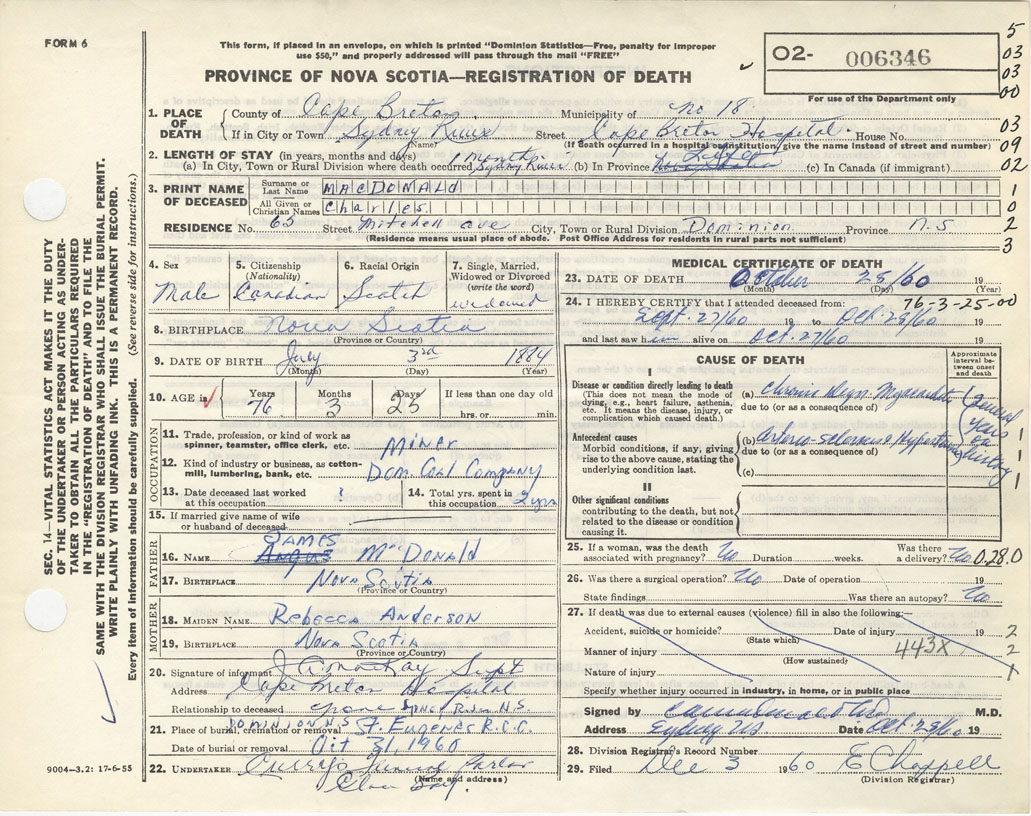 FORM 6
This form, if placed in an envelope, on which is printed "Dominion Statistics—Free, penalty for improper
use $50," and properly addressed will pass through the mail "FREE"
PROVINCE OF NOVA SCOTIA—REGISTRATION OF DEATH
O2- 006346
For use of the Department only
5
03
03
00
03
09
02
1
0
2
3
SEC. 14—VITAL STATISTICS ACT MAKES IT THE DUTY
OF THE UNDERTAKER OR PERSON ACTING AS UNDER-
TAKER TO OBTAIN ALL THE PARTICULARS REQUIRED
IN THE "REGISTRATION OF DEATH" AND TO FILE THE
SAME WITH THE DIVISION REGISTRAR WHO SHALL ISSUE THE BURIAL PERMIT.
WRITE PLAINLY WITH UNFADING INK. THIS IS A PERMANENT RECORD.
Every item of information should be carefully supplied. (See reverse side for instructions.)
1. PLACE OF DEATH County of Cape Breton Municipality of No 18
If in City or Town Sydney River Street Cape Breton Hospital House No.
(Name) (If death occurred in a hospital or institution, give the name instead of street and number)
2. LENGTH OF STAY (in years, months and days)
(a) In City, Town or Rural Division where death occurred 1 month Sydney River (b) In Province Life (c) In Canada (if immigrant)
3. PRINT NAME OF DECEASED
Surname or Last Name MACDONALD
All Given or Christian Names Charles
RESIDENCE No. 63 Street Mitchell ave City, Town or Rural Division Dominion Province N.S
(Residence means usual place of abode. Post Office Address for residents in rural parts not sufficient)
4. Sex Male
5. Citizenship (Nationality) Canadian
6. Racial Origin Scotch
7. Single, Married, Widowed or Divorced (write the word) widowed
8. BIRTHPLACE Nova Scotia
(Province or Country)
9. DATE OF BIRTH July 3rd 1884
(Month) (Day) (Year)
10. AGE is Years 76 Months 3 Days 25 If less than one day old
hrs. or min.
OCCUPATION
11. Trade, profession, or kind of work as spinner, teamster, office clerk, etc. Miner
12. Kind of industry or business, as cotton-mill, lumbering, bank, etc. Dom. Coal Company
13. Date deceased last worked at this occupation ?
14. Total yrs. spent in this occupation 2 yrs
15. If married give name of wife or husband of deceased
FATHER
16. NAME Angus JAMES McDonald
17. BIRTHPLACE Nova Scotia
(Province or Country)
MOTHER
18. MAIDEN NAME Rebecca Anderson
19. BIRTHPLACE Nova Scotia
(Province or Country)
20. Signature of informant Supt
Address Cape Breton Hospital
Relationship to deceased
21. Place of burial, cremation or removal DOMINION N.S St. Eugenes R.C.C.
Date of burial or removal Oct 31, 1960
22. UNDERTAKER Funeral Parlor
(Name and address)
9004—3.2: 17-6-55
MEDICAL CERTIFICATE OF DEATH
23. DATE OF DEATH October 28/60 19
(Month) (Day) (Year)
24. I HEREBY CERTIFY that I attended deceased from: 76-3-25-00
Sept. 27/60 19 to Oct. 28/60 19
and last saw him alive on Oct. 27/60 19
CAUSE OF DEATH
Approximate interval between onset and death
I
Disease or condition directly leading to death
(This does not mean the mode of dying, e.g., heart failure, asthenia, etc. It means the disease, injury, or complication which caused death.)
(a) Chronic Degn. Myocarditis
due to (or as a consequence of)
Antecedent causes
Morbid conditions, if any, giving rise to the above cause, stating the underlying condition last.
(b) Arterio-sclerosis & Hypertension
due to (or as a consequence of)
(c)
several years on history
1
1
1
II
Other significant conditions
contributing to the death, but not related to the disease or condition causing it.
25. If a woman, was the death associated with pregnancy? No Duration weeks. Was there a delivery? No 0.28.0
26. Was there a surgical operation? No Date of operation 19
State findings Was there an autopsy? No
27. If death was due to external causes (violence) fill in also the following:—
Accident, suicide or homicide? Date of injury 19 2
(State which)
Manner of injury 443X 2
(How sustained)
Nature of injury 1
Specify whether injury occurred in industry, in home, or in public place
Signed by M.D.
Address Sydney NS Date Oct. 28/60 19
28. Division Registrar's Record Number
29. Filed Dec 3 1960 E Chappell
(Division Registrar)